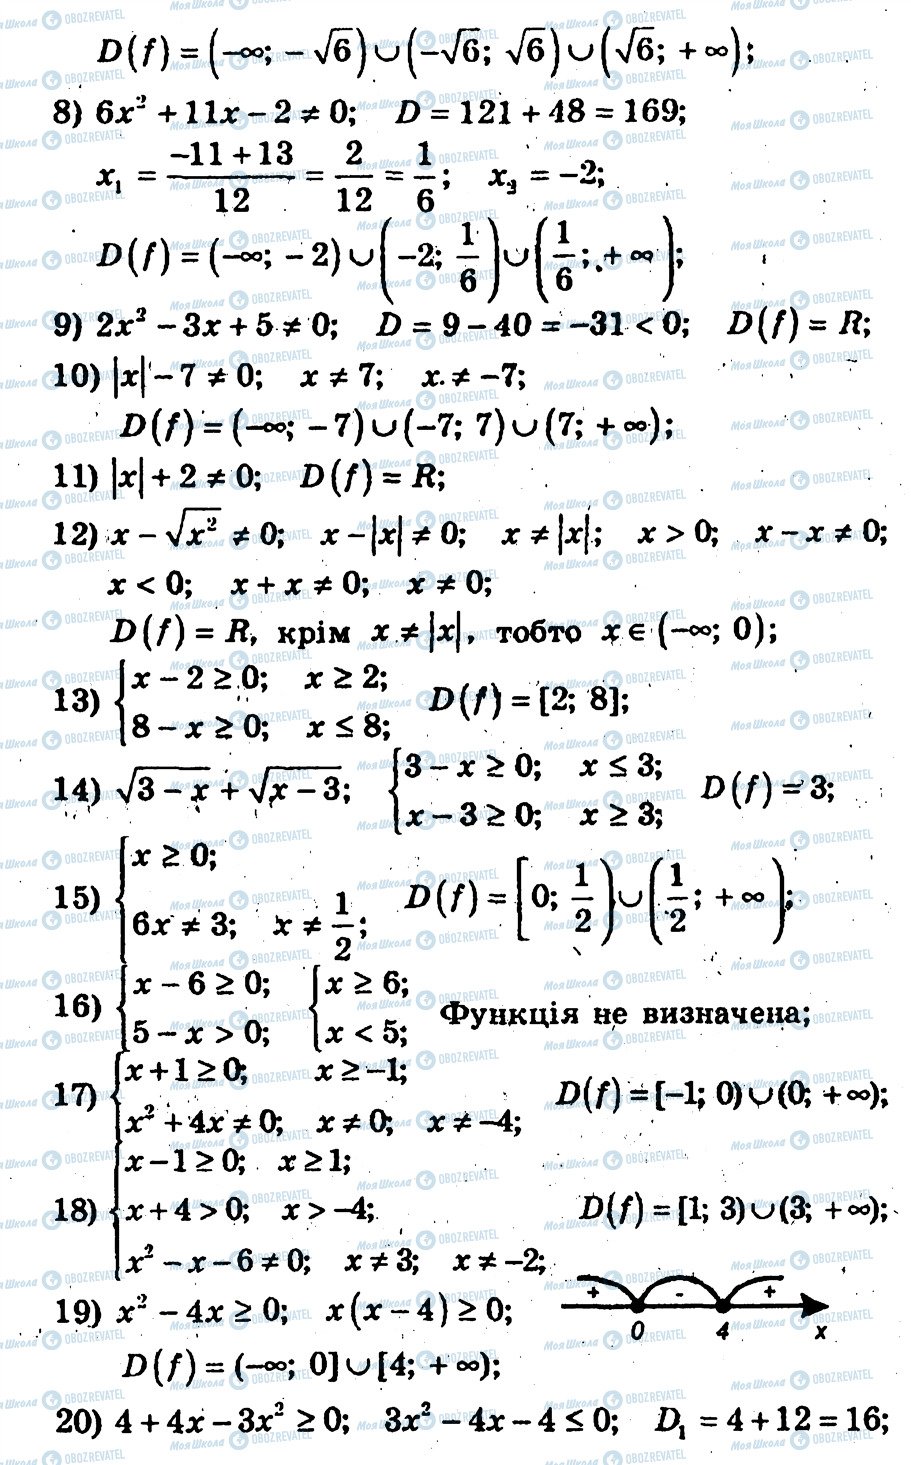 D(f) = (−∞; −√6) ∪ (−√6; √6) ∪ (√6; +∞);
8) 6x² + 11x − 2 ≠ 0; D = 121 + 48 = 169;
x₁ = (−11 + 13)/12 = 2/12 = 1/6; x₂ = −2;
D(f) = (−∞; −2) ∪ (−2; 1/6) ∪ (1/6; +∞);
9) 2x² − 3x + 5 ≠ 0; D = 9 − 40 = −31 < 0; D(f) = R;
10) |x| − 7 ≠ 0; x ≠ 7; x ≠ −7;
D(f) = (−∞; −7) ∪ (−7; 7) ∪ (7; +∞);
11) |x| + 2 ≠ 0; D(f) = R;
12) x − √x² ≠ 0; x − |x| ≠ 0; x ≠ |x|; x > 0; x − x ≠ 0;
x < 0; x + x ≠ 0; x ≠ 0;
D(f) = R, крім x ≠ |x|, тобто x ∈ (−∞; 0);
13) { x − 2 ≥ 0; x ≥ 2;
8 − x ≥ 0; x ≤ 8; D(f) = [2; 8];
14) √(3 − x) + √(x − 3); { 3 − x ≥ 0; x ≤ 3;
x − 3 ≥ 0; x ≥ 3; D(f) = 3;
15) { x ≥ 0;
6x ≠ 3; x ≠ 1/2; D(f) = [0; 1/2) ∪ (1/2; +∞);
16) { x − 6 ≥ 0; { x ≥ 6;
5 − x > 0; x < 5; Функція не визначена;
17) { x + 1 ≥ 0; x ≥ −1;
x² + 4x ≠ 0; x ≠ 0; x ≠ −4; D(f) = [−1; 0) ∪ (0; +∞);
18) { x − 1 ≥ 0; x ≥ 1;
x + 4 > 0; x > −4; D(f) = [1; 3) ∪ (3; +∞);
x² − x − 6 ≠ 0; x ≠ 3; x ≠ −2;
19) x² − 4x ≥ 0; x(x − 4) ≥ 0;
+ - +
0 4 x
D(f) = (−∞; 0] ∪ [4; +∞);
20) 4 + 4x − 3x² ≥ 0; 3x² − 4x − 4 ≤ 0; D₁ = 4 + 12 = 16;
МояШкола OBOZREVATEL